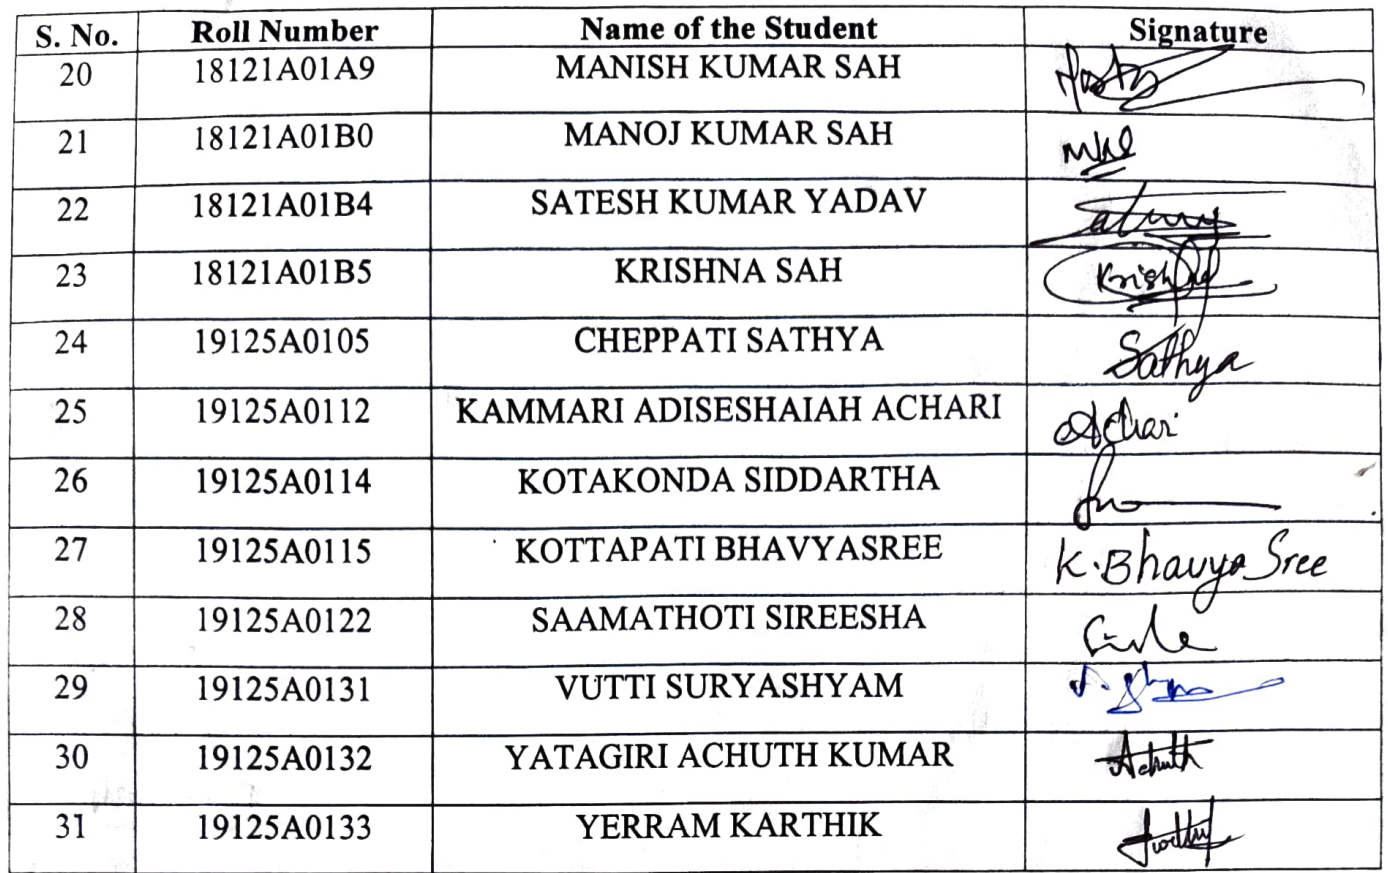 S. No. Roll Number Name of the Student Signature
20 18121A01A9 MANISH KUMAR SAH
21 18121A01B0 MANOJ KUMAR SAH
22 18121A01B4 SATESH KUMAR YADAV
23 18121A01B5 KRISHNA SAH Krishna
24 19125A0105 CHEPPATI SATHYA Sathya
25 19125A0112 KAMMARI ADISESHAIAH ACHARI Achari
26 19125A0114 KOTAKONDA SIDDARTHA
27 19125A0115 KOTTAPATI BHAVYASREE K. Bhavya Sree
28 19125A0122 SAAMATHOTI SIREESHA
29 19125A0131 VUTTI SURYASHYAM
30 19125A0132 YATAGIRI ACHUTH KUMAR Achuth
31 19125A0133 YERRAM KARTHIK